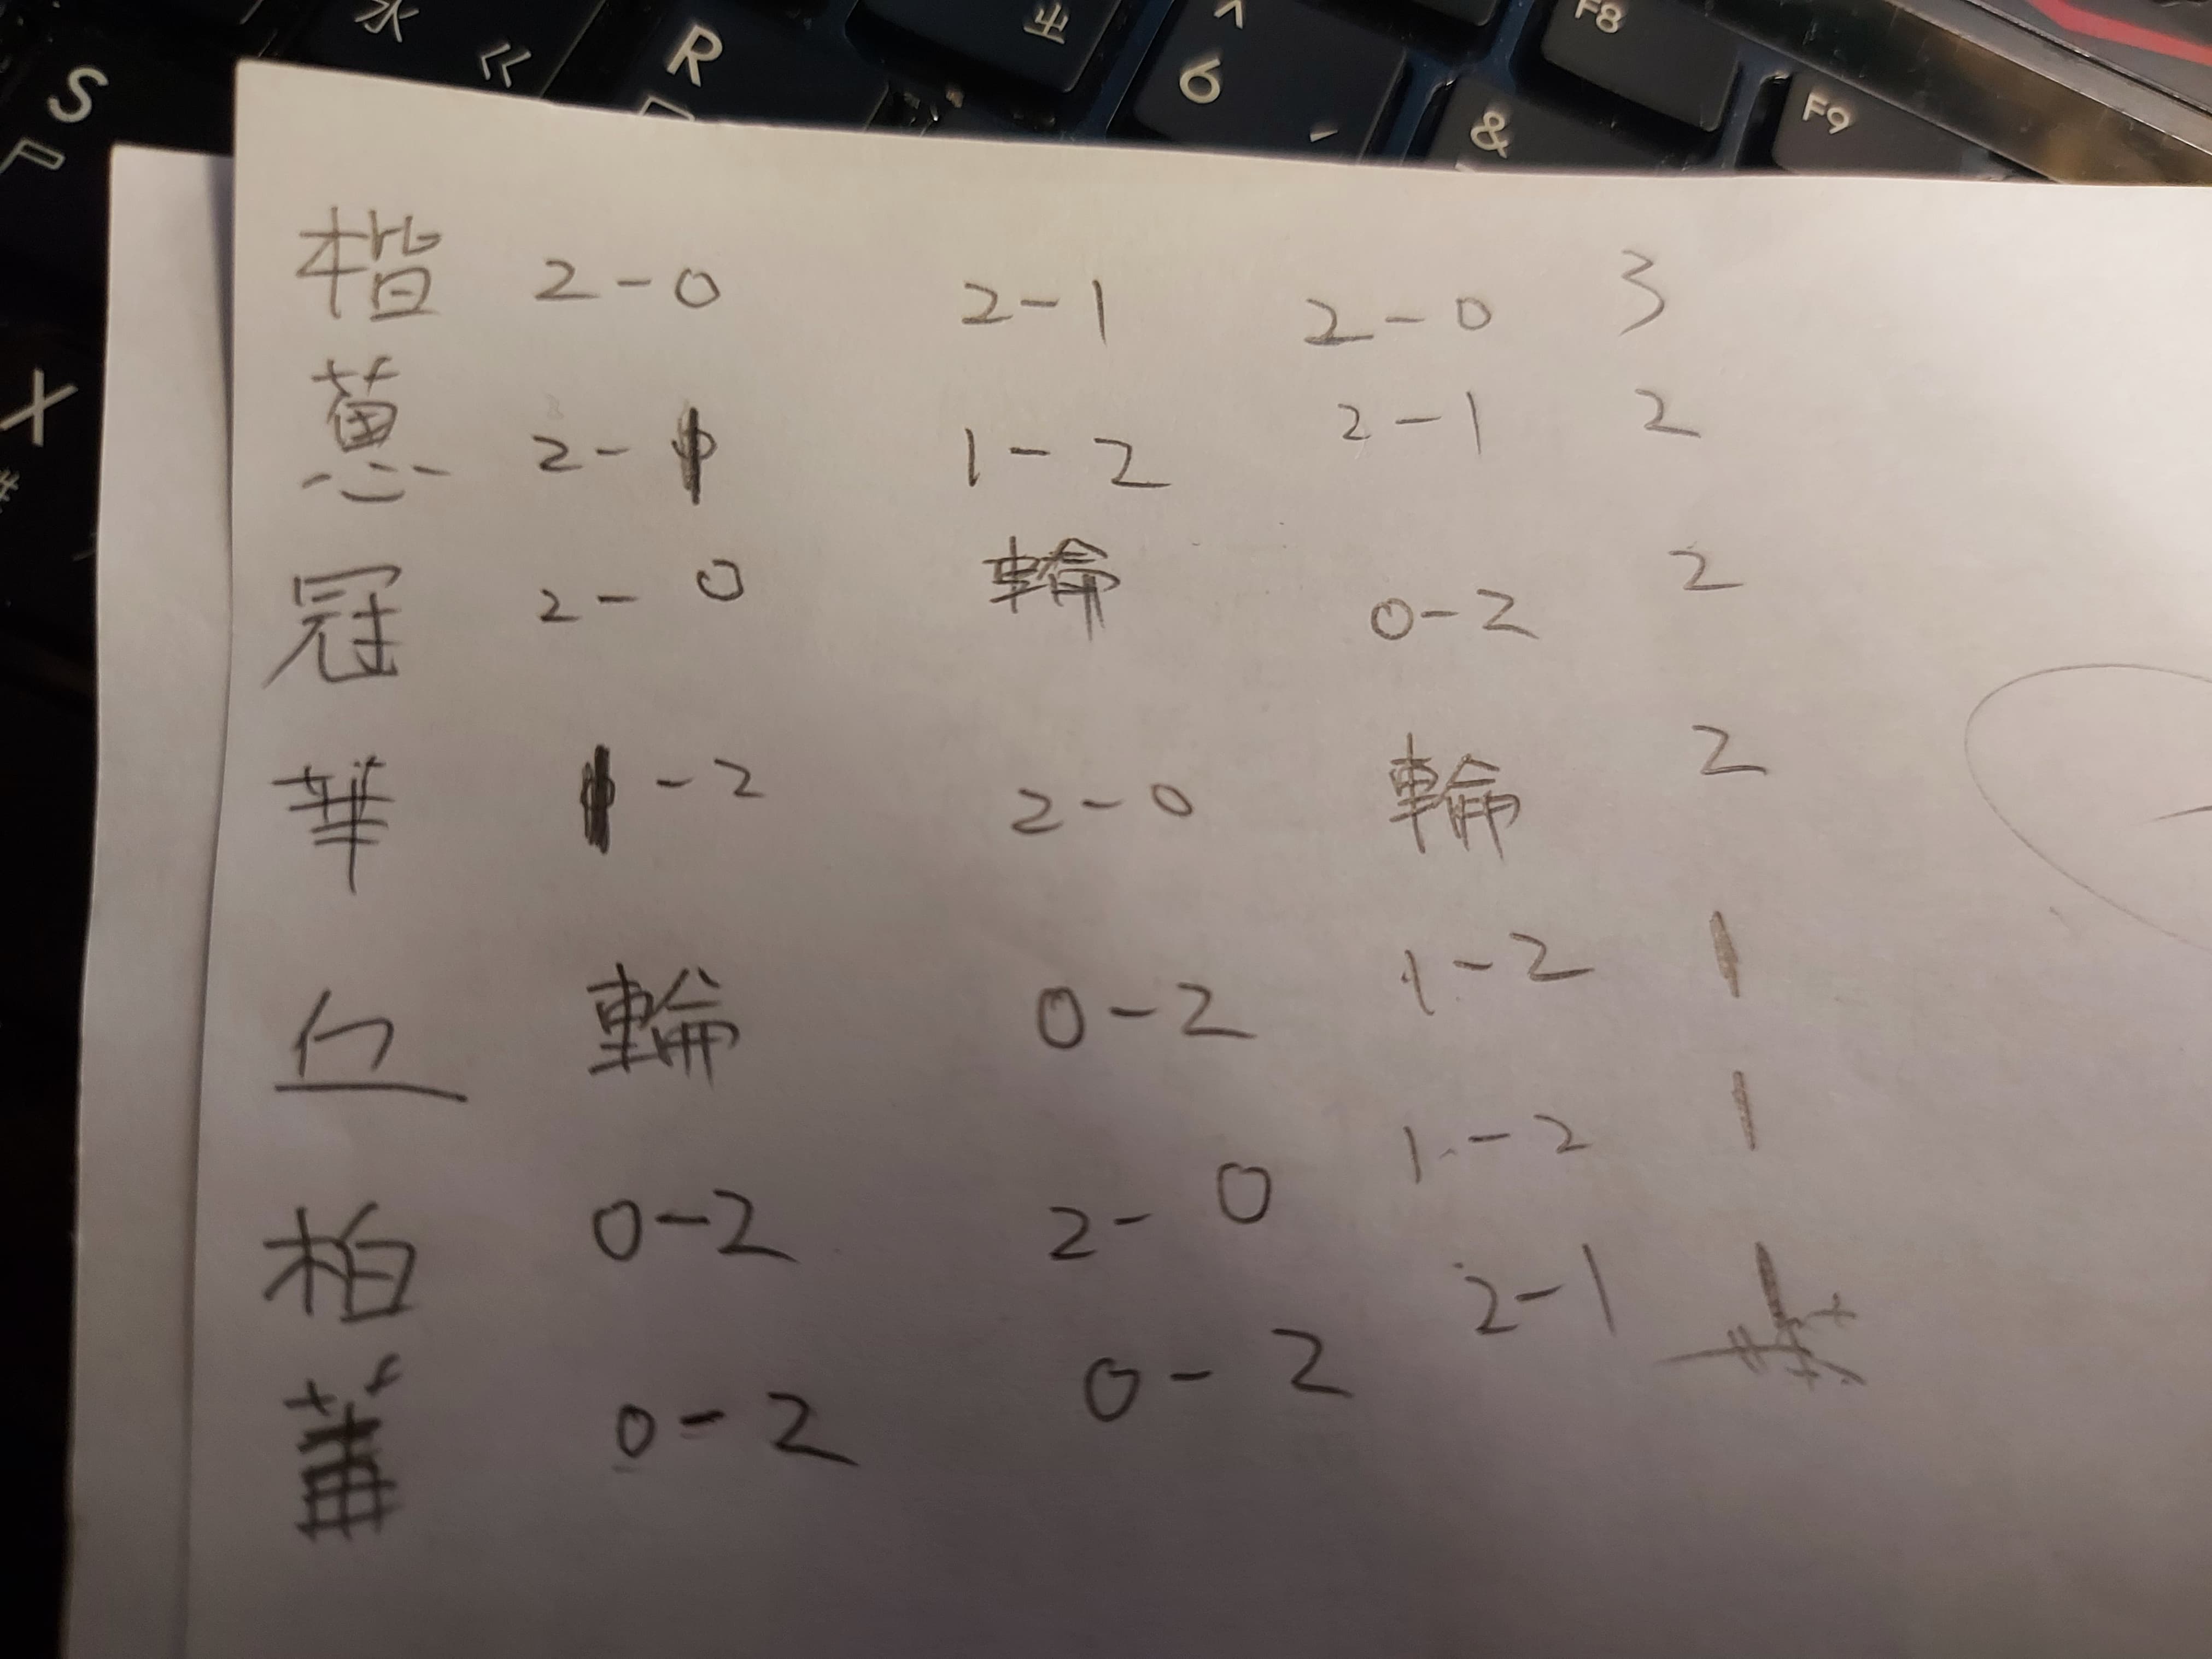 水 R 出 ^ 6 F8
S & F9
X
楷 2-0 2-1 2-0 3
蕙 2-1 1-2 2-1 2
冠 2-0 輪 0-2 2
華 1-2 2-0 輪 2
輪 0-2 1-2 1
柏 0-2 2-0 1-2 1
0-2 0-2 2-1 1